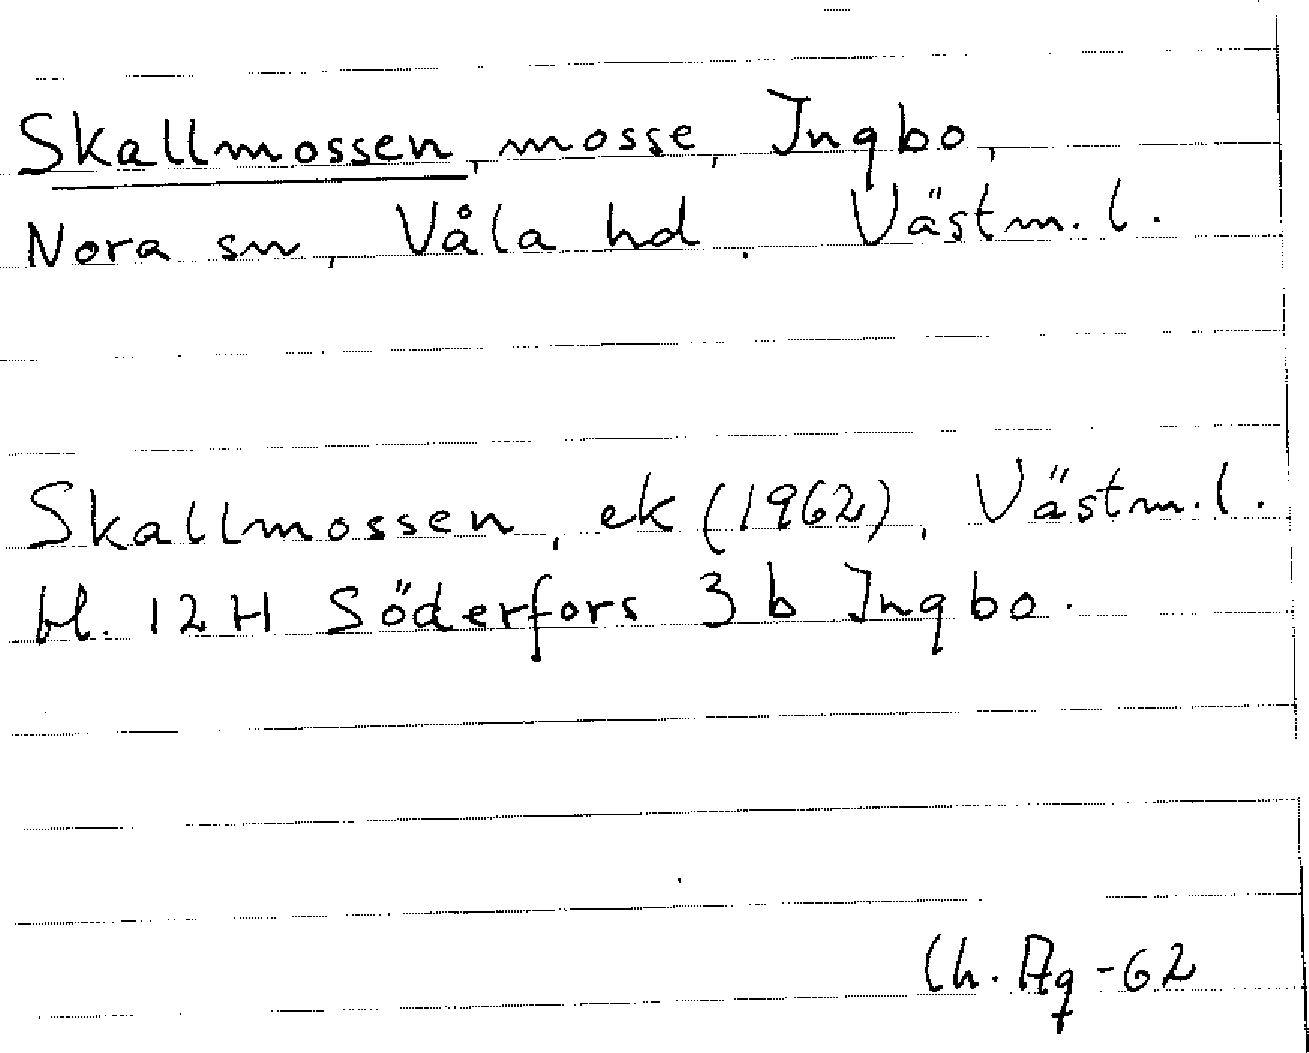 Skallmossen, mosse, Ingbo,
Nora sn, Våla hd. Västm. l.
Skallmossen, ek (1962), Västm. l.
bl. 12 H Söderfors 3 b Ingbo.
Ch. Ag -62